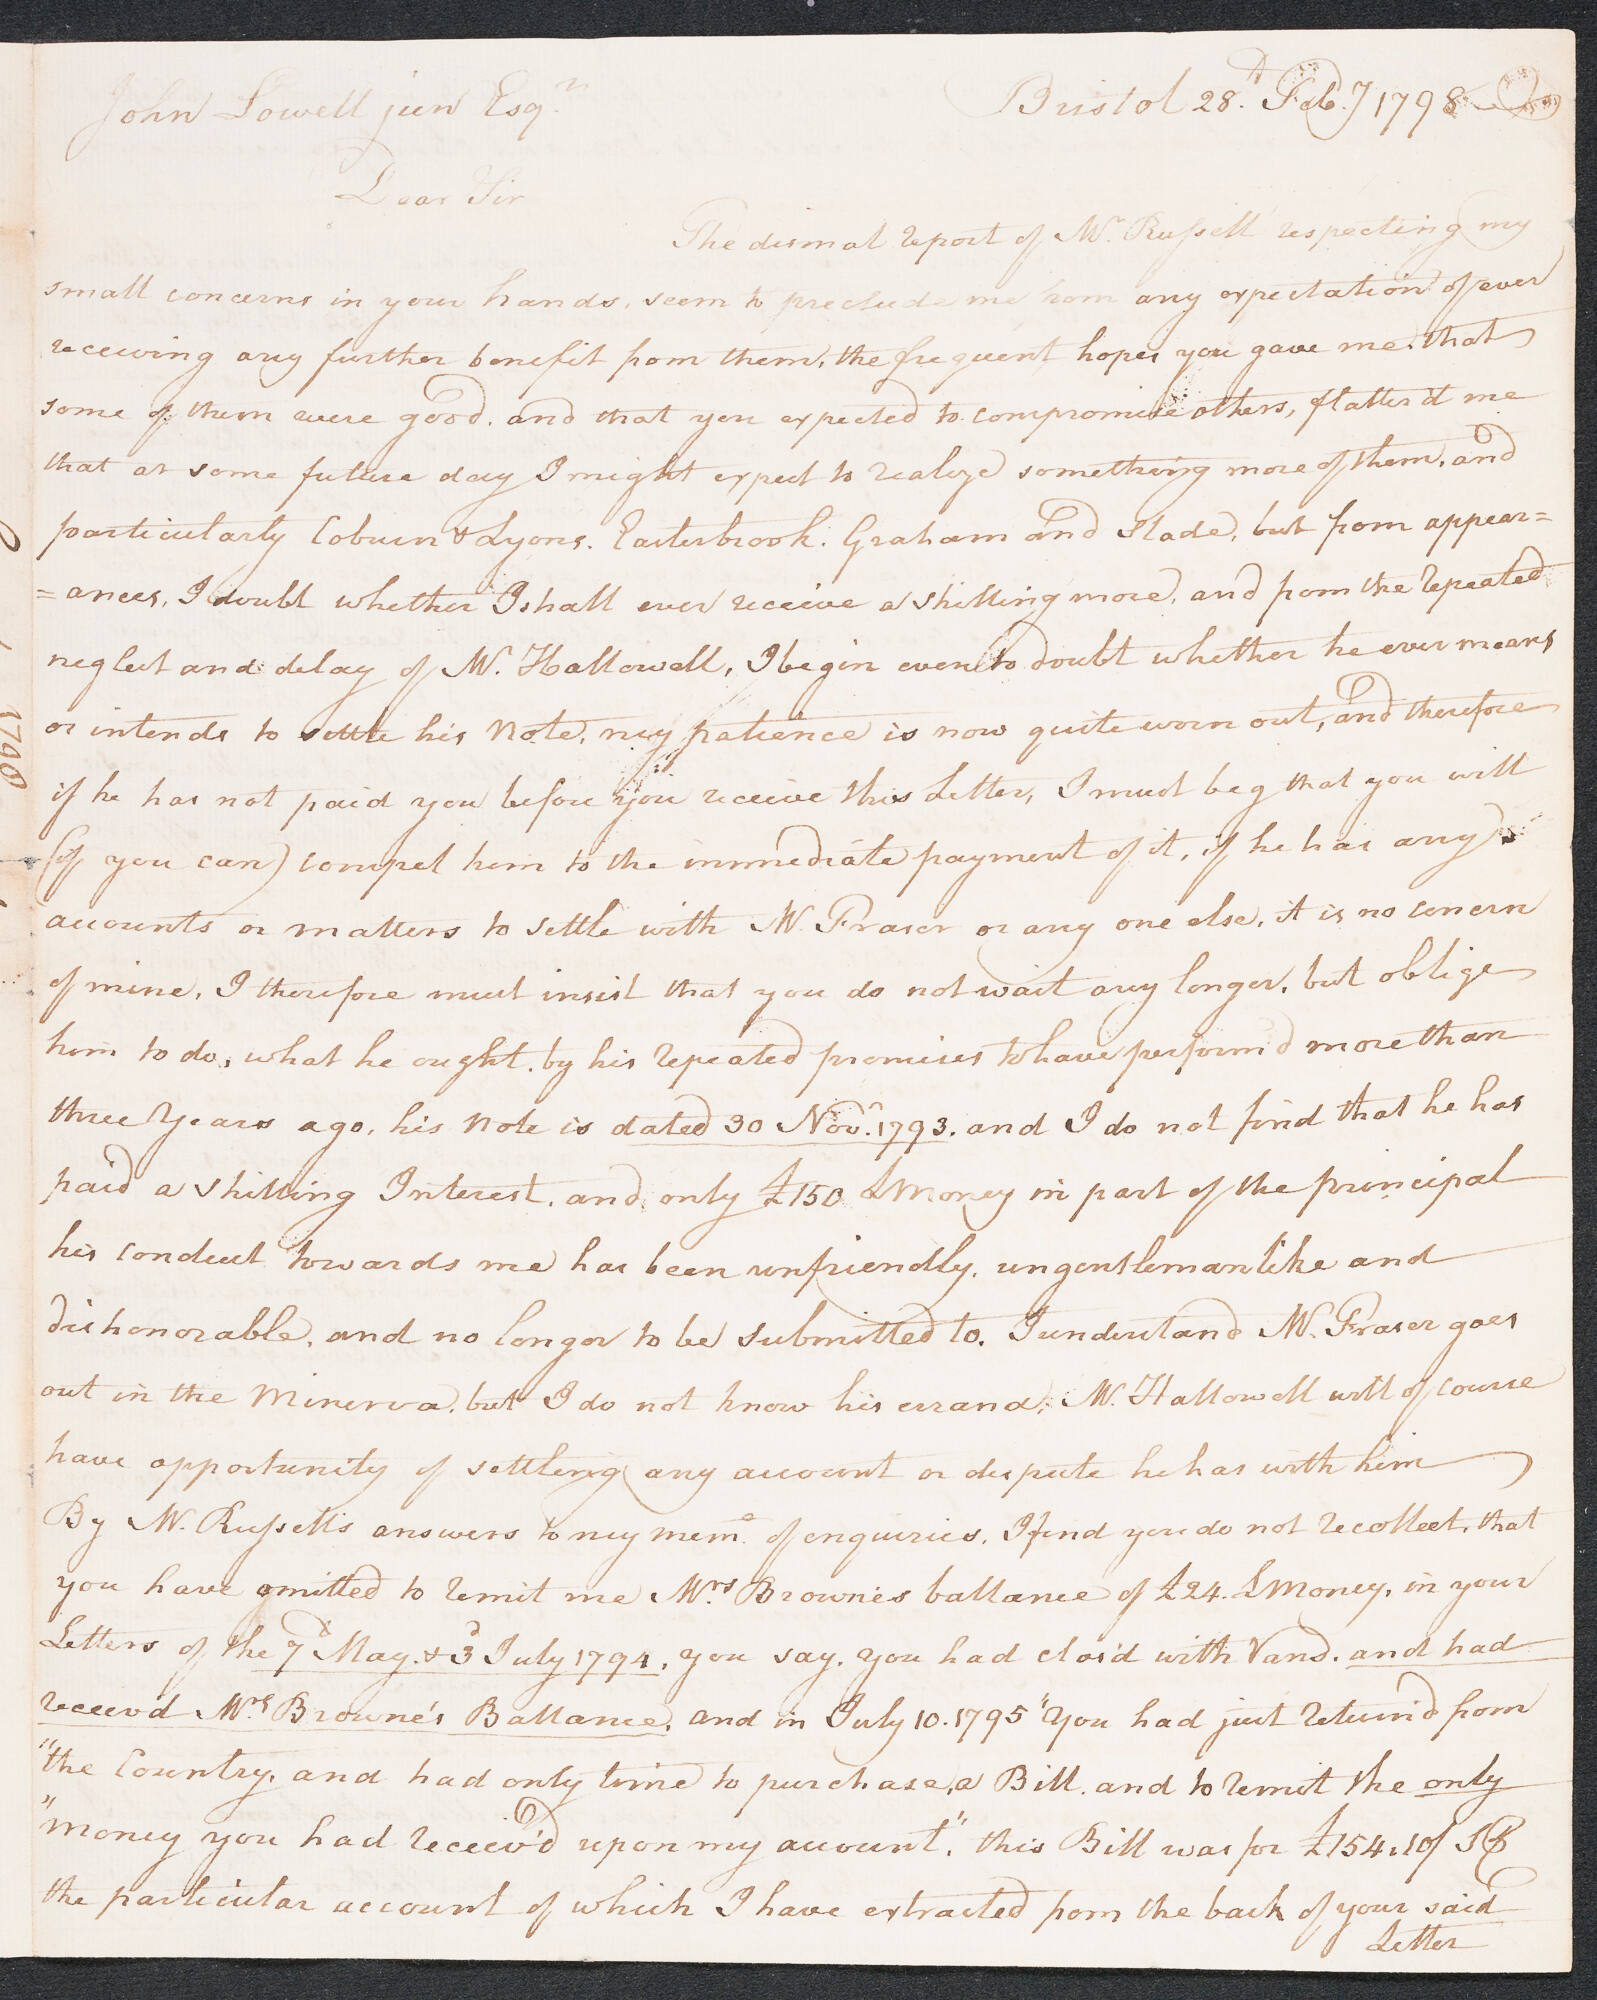 John Lowell jun Esqr.
Bristol 28.th Feby 1798
Dear Sir
The dismal report of Mr. Russell respecting my
small concerns in your hands, seem to preclude me from any expectation of ever
receiving any further benefit from them, the frequent hopes you gave me that
some of them were good, and that you expected to compromise others, flatter'd me
that at some future day I might expect to realize something more of them, and
particularly Coburn & Lyons. Easterbrook. Graham and Slade, but from appear=
=ances, I doubt whether I shall ever receive a shilling more, and from the repeated
neglect and delay of Mr. Hallowell, I begin even to doubt whether he ever means
or intends to settle his Note, my patience is now quite worn out, and therefore
if he has not paid you before you receive this Letter, I must beg that you will
(if you can) compel him to the immediate payment of it, if he has any
accounts or matters to settle with Mr. Fraser or any one else, it is no concern
of mine, I therefore must insist that you do not wait any longer, but oblige
him to do, what he ought, by his repeated promises to have perform'd more than
three Years ago, his Note is dated 30 Novr. 1793. and I do not find that he has
paid a shilling Interest, and only £150 LMoney in part of the principal
his conduct towards me has been unfriendly, ungentlemanlike and
dishonorable, and no longer to be submitted to. I understand Mr. Fraser goes
out in the Minerva, but I do not know his errand, Mr. Hallowell will of course
have opportunity of settling any account or dispute he has with him
By Mr. Russell's answers to my memo. of enquiries, I find you do not recollect, that
you have omitted to remit me Mrs. Browne's ballance of £24. LMoney, in your
Letters of the 7th May & 3d July 1794, you say, you had clos'd with Vand. and had
receiv'd Mrs. Browne's Ballance, and in July 10. 1795 "You had just return'd from
"the Country, and had only time to purchase, a Bill, and to remit the only
"money you had receiv'd upon my account", this Bill was for £154.10/
the particular account of which I have extracted from the back of your said
Letter